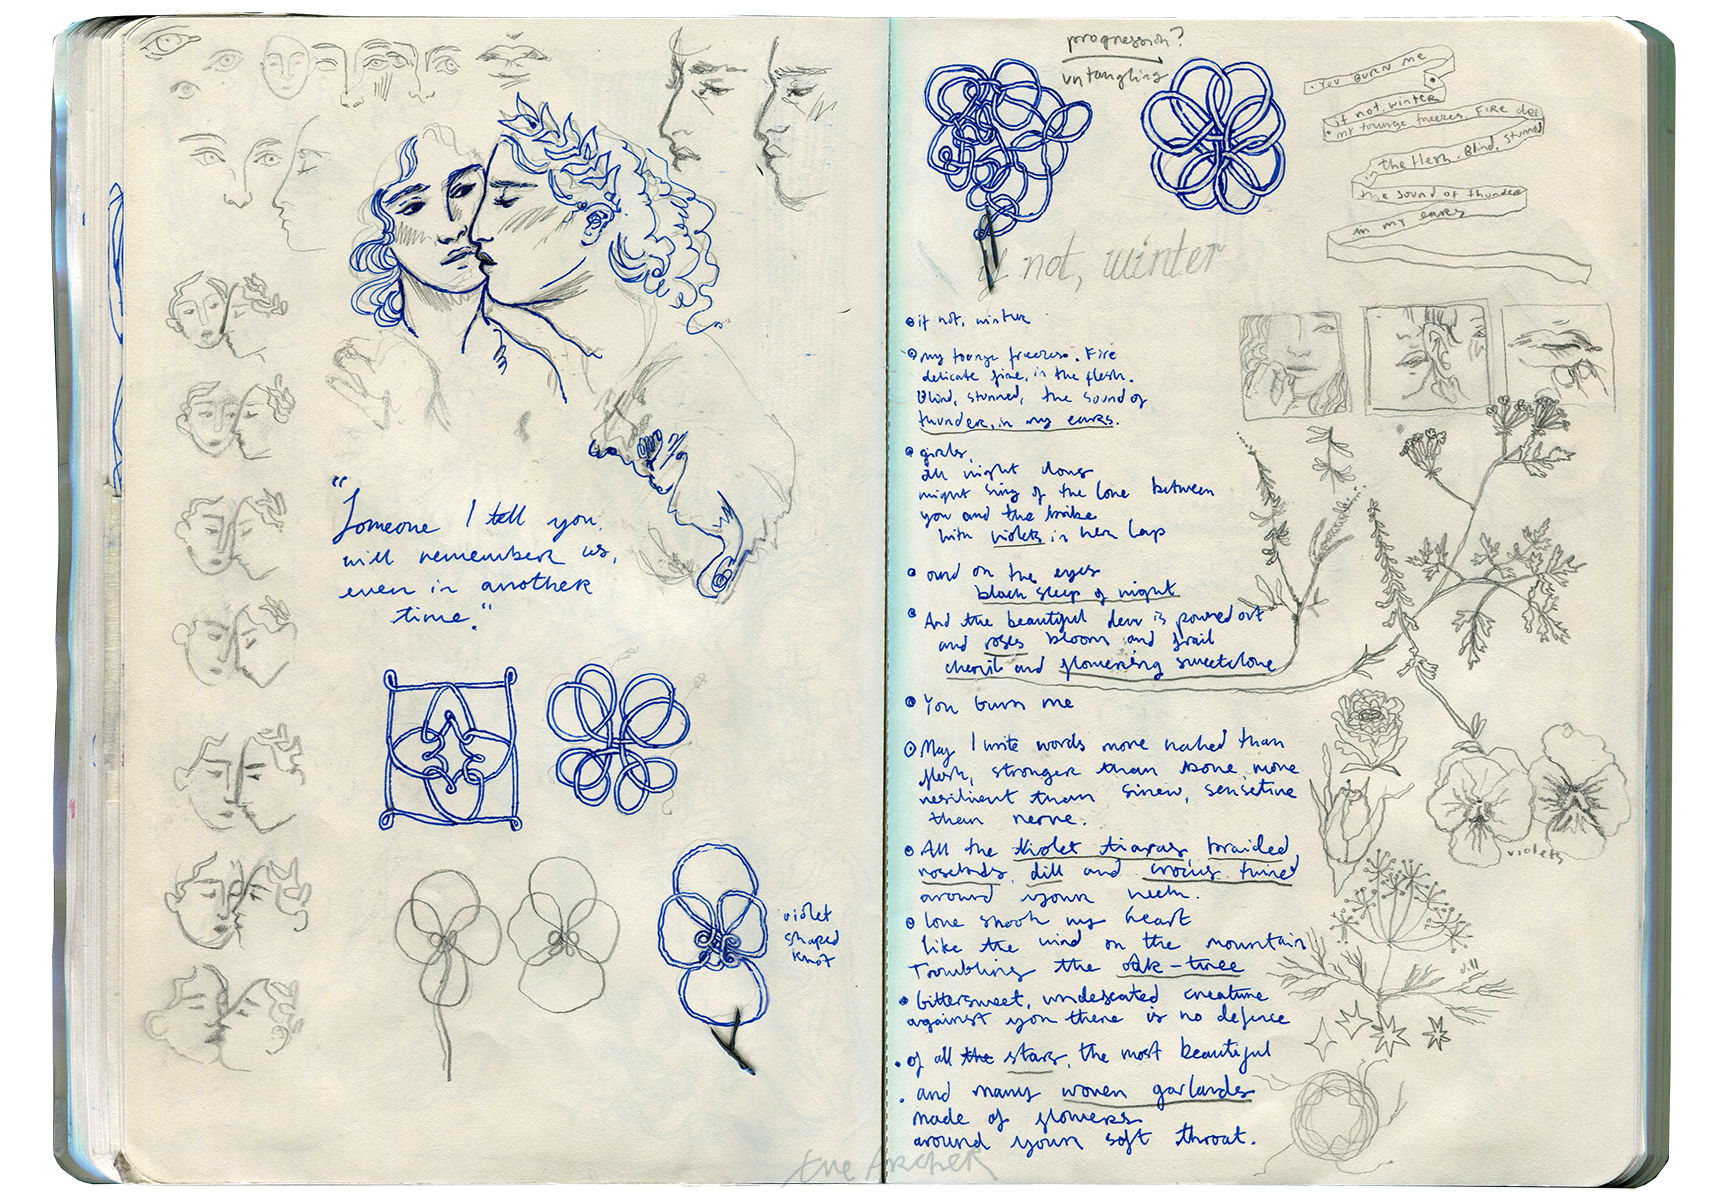 "Someone I tell you,
will remember us,
even in another
time."
violet
shaped
knot
progression?
untangling
YOU BURN ME
if not, winter
my tounge freezes. FIRE del
the flesh. Blind, stunned
the sound of thunder
in my ears
if not, winter
if not, winter
my tounge freezes. Fire
delicate fire, in the flesh.
Blind, stunned, the sound of
thunder, in my ears.
girls,
all night long
might sing of the love between
you and the bride
with violets in her lap
and on the eyes
black sleep of night
And the beautiful dew is poured out
and roses bloom and frail
chervil and flowering sweetclove
You burn me
May I write words more naked than
flesh, stronger than bone, more
resilient than sinew, sensetive
than nerve.
All the violet tiaras, braided
rosebuds, dill and crocus twined
around your neck.
love shook my heart
like the wind on the mountain
Troubling the oak-tree
bittersweet, undefeated creature
against you there is no defence
of all the stars, the most beautiful
and many woven garlands
made of flowers
around your soft throat.
violets
dill
the Archer